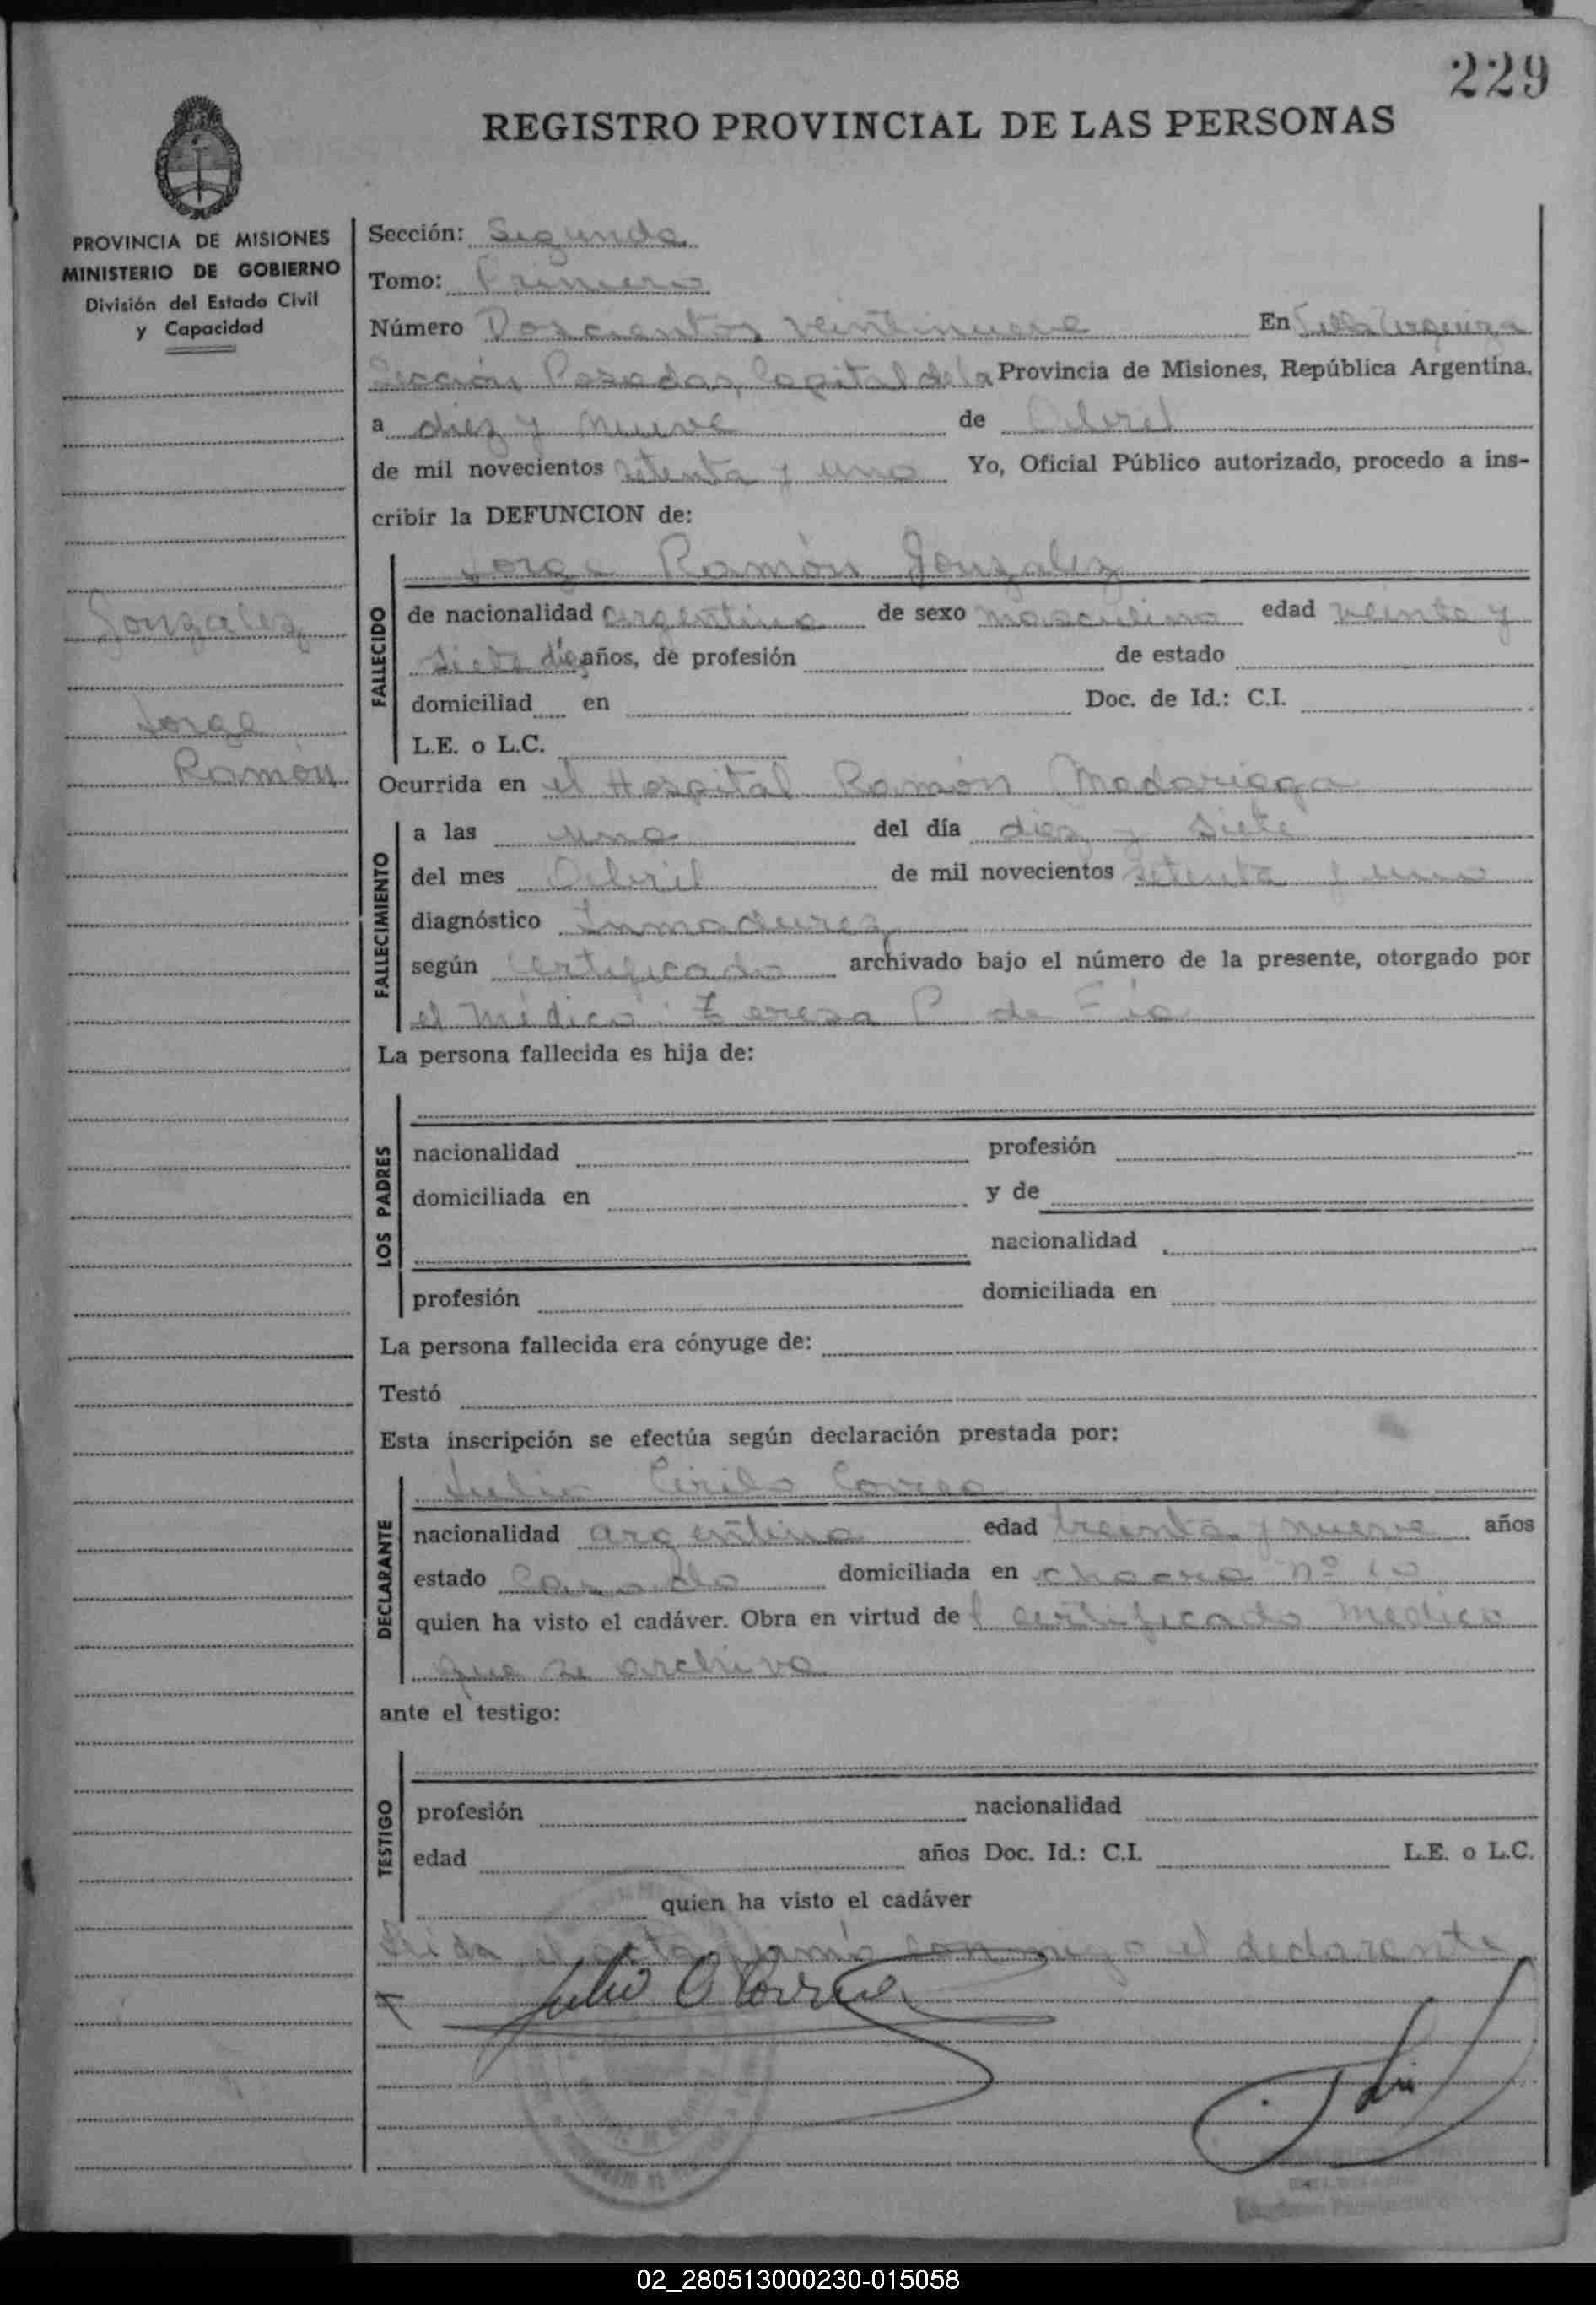 229
REGISTRO PROVINCIAL DE LAS PERSONAS
PROVINCIA DE MISIONES
MINISTERIO DE GOBIERNO
División del Estado Civil
y Capacidad
Gonzalez
Jorge
Ramón
Sección: Segunda
Tomo: Primero
Número Doscientos veintinueve En Villa Urquiza
Sección Posadas, Capital de la Provincia de Misiones, República Argentina.
a diez y nueve de Abril
de mil novecientos setenta y uno Yo, Oficial Público autorizado, procedo a ins-
cribir la DEFUNCION de:
FALLECIDO
Jorge Ramón Gonzalez
de nacionalidad argentina de sexo masculino edad veinte y
siete días años, de profesión de estado
domiciliad en Doc. de Id.: C.I.
L.E. o L.C.
Ocurrida en el Hospital Ramón Madariaga
FALLECIMIENTO
a las una del día diez y siete
del mes Abril de mil novecientos setenta y uno
diagnóstico Inmadurez
según certificado archivado bajo el número de la presente, otorgado por
el médico: Teresa P. de
La persona fallecida es hija de:
LOS PADRES
nacionalidad profesión
domiciliada en y de
nacionalidad
profesión domiciliada en
La persona fallecida era cónyuge de:
Testó
Esta inscripción se efectúa según declaración prestada por:
DECLARANTE
Julio Cirilo Correa
nacionalidad argentina edad treinta y nueve años
estado Casado domiciliada en chacra nº 10
quien ha visto el cadáver. Obra en virtud de certificado medico
que se archiva
ante el testigo:
TESTIGO
profesión nacionalidad
edad años Doc. Id.: C.I. L.E. o L.C.
quien ha visto el cadáver
Leida el acta firmó conmigo el declarante
Julio C. Correa
02_280513000230-015058